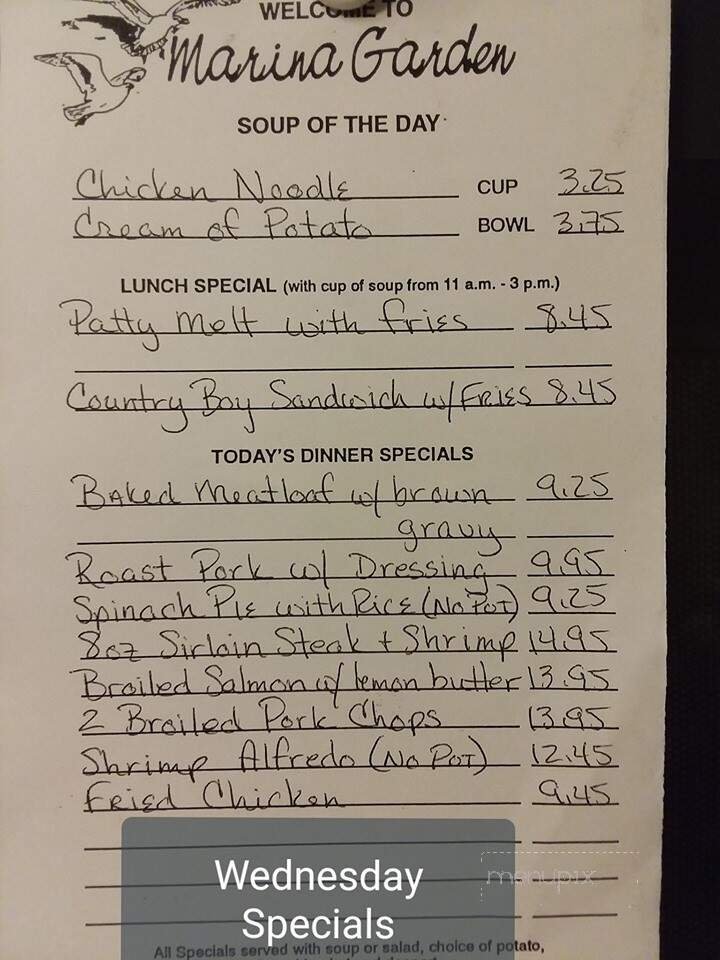 WELCOME TO
Marina Garden
SOUP OF THE DAY
Chicken Noodle CUP 3.25
Cream of Potato BOWL 3.75
LUNCH SPECIAL (with cup of soup from 11 a.m. - 3 p.m.)
Patty Melt with fries 8.45
Country Boy Sandwich w/ Fries 8.45
TODAY'S DINNER SPECIALS
Baked Meatloaf w/ brown 9.25
gravy
Roast Pork w/ Dressing 9.95
Spinach Pie with Rice (No Pot) 9.25
8oz Sirloin Steak + Shrimp 14.95
Broiled Salmon w/ lemon butter 13.95
2 Broiled Pork Chops 13.95
Shrimp Alfredo (No Pot) 12.45
Fried Chicken 9.45
Wednesday
Specials
menupix
All Specials served with soup or salad, choice of potato,